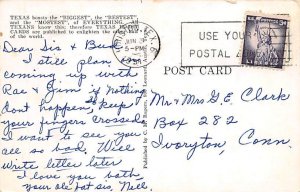 TEXAS boasts the "BIGGEST", the "BESTEST"
and the "MOSTEST", of EVERYTHING. AS
TEXANS know this; therefore TEXAS POST
CARDS are published to enlighten the
Dear Sis & Bud
I still plan
coming up with
Rae & Jim if nothing
dont happen, keep
your fingers crossed.
I want to see you
all so bad. Will
write letter later
I love you both
your ole fat sis, Nell,
Published by C.
JUN
5-PM
USE YOUR
POSTAL
POST CARD
Mr. & Mrs G. E. Clark
Box 282
Ivoryton, Conn.